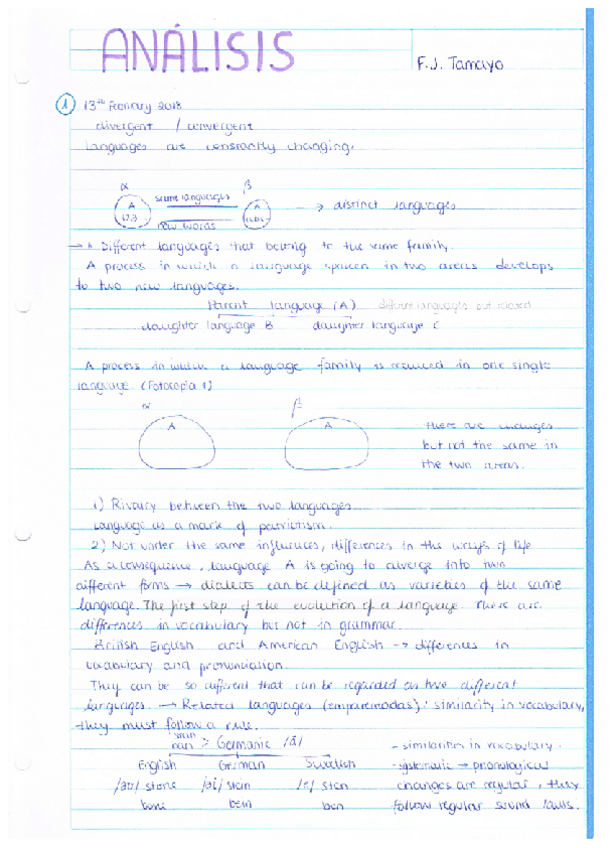 ANÁLISIS
F.J. Tamayo
1 13th February 2018
divergent / convergent
languages are constantly changing.
α β
A same languages A → distinct languages
new words
Different languages that belong to the same family.
A process in which a language spoken in two areas develops
to two new languages.
Parent language (A) different languages but related
daughter language B daughter language C
A process in which a language family is reduced in one single
language (Fotocopia 1)
α β
A A there are changes
but not the same in
the two areas.
1) Rivalry between the two languages
Language as a mark of patriotism.
2) Not under the same influences, differences in the ways of life
As a consequence, language A is going to diverge into two
different forms → dialects can be defined as varieties of the same
language. The first step of the evolution of a language. There are
differences in vocabulary but not in grammar.
British English and American English → differences in
vocabulary and pronunciation.
They can be so different that can be regarded as two different
languages. → Related languages (emparentadas): similarity in vocabulary,
they must follow a rule.
> Germanic - similarities in vocabulary.
English German Swedish - systematic → phonological
stone stein sten changes are regular, they
bone bein ben follow regular sound laws.